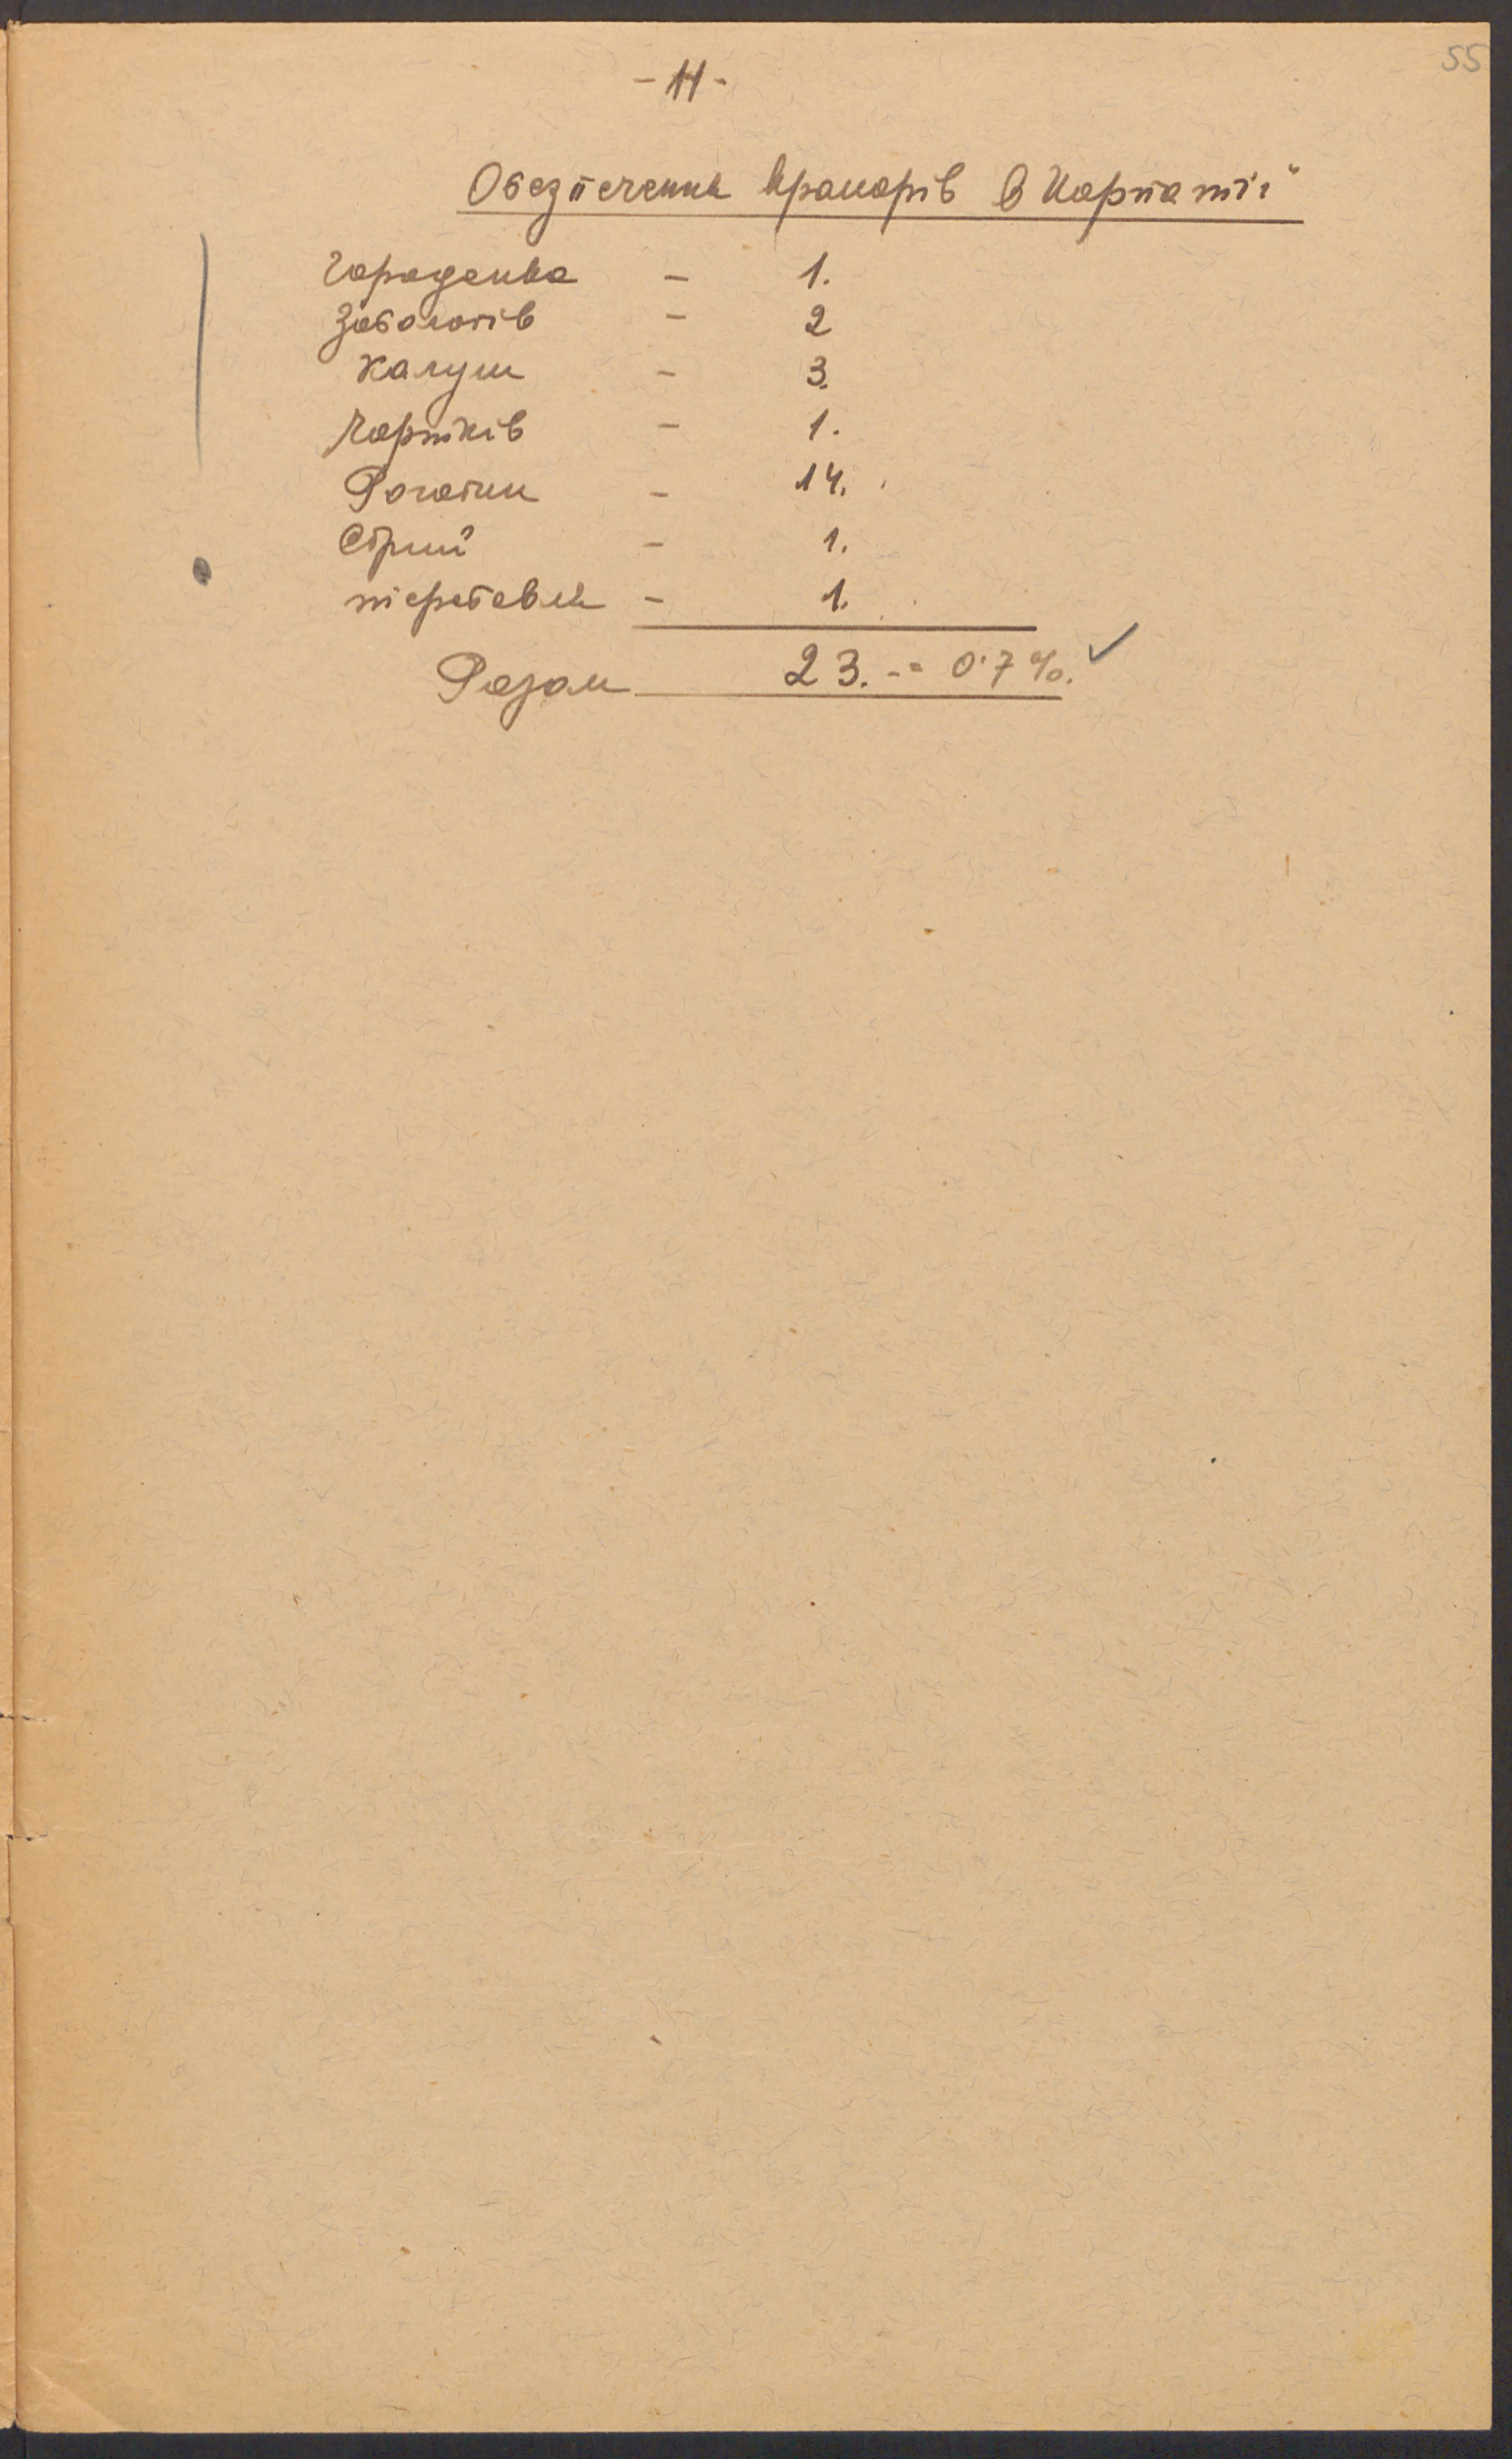 55
- 11 -
Обезпечення крамарів в Карпатії"
Городенка - 1.
Заболотів - 2
Калуш - 3.
Чортків - 1.
Рогатин - 14.
Стрий - 1.
Теребовля - 1.
Разом 23. -= 0·7%. ✓